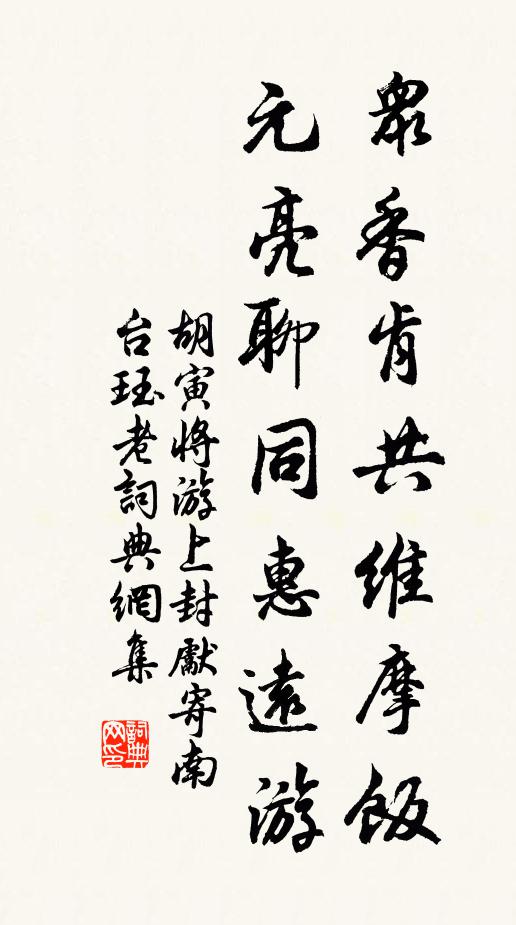 眾香肯共維摩飯
元亮聊同惠遠游
胡寅將游上封獻寄南
台珏老詞典網集
詞典
网印